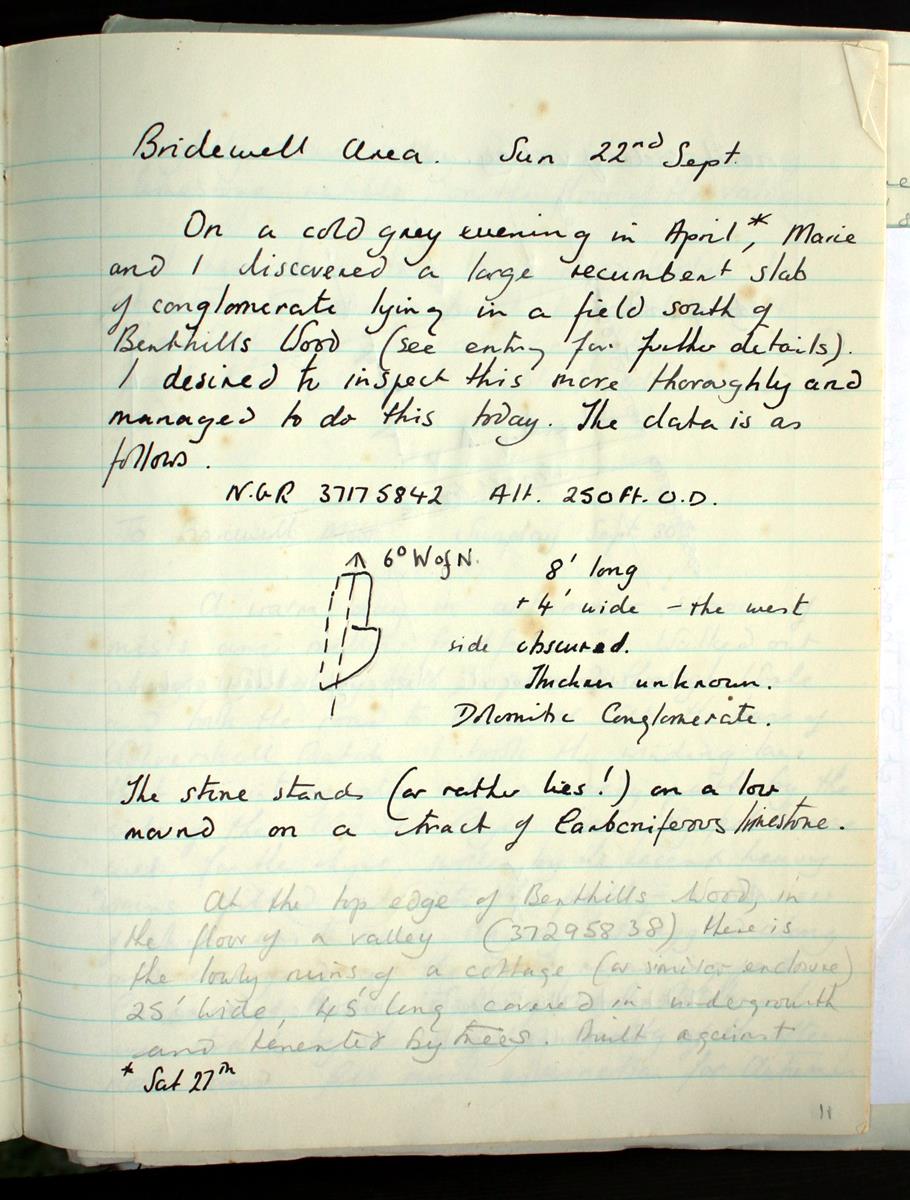 Bridewell Area. Sun 22nd Sept.
On a cold grey evening in April*, Marie
and I discovered a large recumbent slab
of conglomerate lying in a field south of
Benthills Wood (see entry for further details).
I desired to inspect this more thoroughly and
managed to do this today. The data is as
follows.
N.G.R 37175842 Alt. 250ft. O.D.
6° W of N.
8' long
+4' wide - the west
side obscured.
Thickness unknown.
Dolomitic Conglomerate.
The stone stands (or rather lies!) on a low
mound on a tract of Carboniferous limestone.
At the top edge of Benthills Wood, in
the floor of a valley (37295838) there is
the lowly ruins of a cottage (or similar enclosure)
25' wide, 45' long covered in undergrowth
and tenented by trees. Built against
* Sat 27th